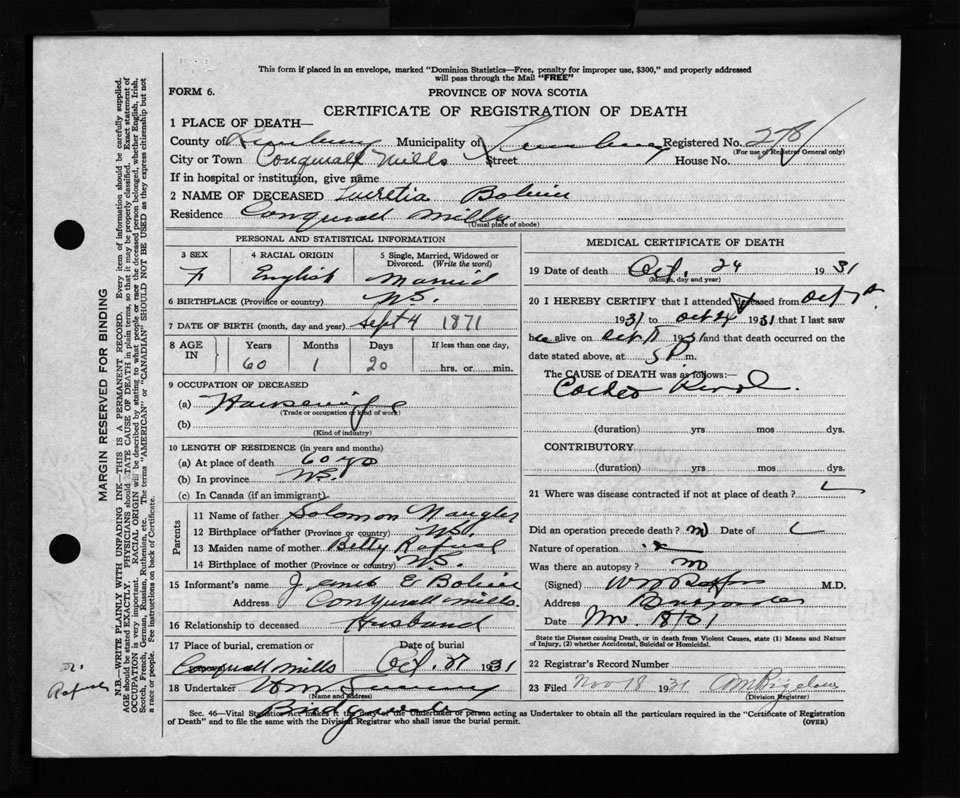 This form if placed in an envelope, marked "Dominion Statistics—Free, penalty for improper use, $300," and properly addressed
will pass through the Mail "FREE"
FORM 6.
PROVINCE OF NOVA SCOTIA
CERTIFICATE OF REGISTRATION OF DEATH
1 PLACE OF DEATH—
County of Lunenburg Municipality of Lunenburg Registered No. 278
(For use of Registrar General only)
City or Town Conquerall Mills Street House No.
If in hospital or institution, give name
2 NAME OF DECEASED Lucretia Bolivar
Residence Conquerall Mills
(Usual place of abode)
PERSONAL AND STATISTICAL INFORMATION
3 SEX 4 RACIAL ORIGIN 5 Single, Married, Widowed or
Divorced. (Write the word)
F English Married
6 BIRTHPLACE (Province or country) N.S.
7 DATE OF BIRTH (month, day and year) Sept 4 1871
8 AGE IN Years Months Days If less than one day,
60 1 20 hrs. or min.
9 OCCUPATION OF DECEASED
(a) Housewife
(Trade or occupation or kind of work)
(b)
(Kind of industry)
10 LENGTH OF RESIDENCE (in years and months)
(a) At place of death 60 yrs
(b) In province N.S.
(c) In Canada (if an immigrant)
Parents
11 Name of father Solomon Naugler
12 Birthplace of father (Province or country) N.S.
13 Maiden name of mother Betty Rafuse
14 Birthplace of mother (Province or country) N.S.
15 Informant's name James E Bolivar
Address Conquerall Mills.
16 Relationship to deceased Husband
17 Place of burial, cremation or Date of burial
Conquerall Mills Oct. 27 1931
18 Undertaker
(Name and address)
Bridgewater
MEDICAL CERTIFICATE OF DEATH
19 Date of death Oct. 24 1931
(Month, day and year)
20 I HEREBY CERTIFY that I attended deceased from Oct
1931 to Oct 24 1931 that I last saw
h alive on Oct 1931 and that death occurred on the
date stated above, at 5 P m.
The CAUSE of DEATH was as follows:—
Cardio Renal
(duration) yrs mos dys.
CONTRIBUTORY
(duration) yrs mos dys.
21 Where was disease contracted if not at place of death?
Did an operation precede death? no Date of
Nature of operation
Was there an autopsy? no
(Signed) M.D.
Address
Date Nov. 18/31
State the Disease causing Death, or in death from Violent Causes, state (1) Means and Nature
of Injury, (2) whether Accidental, Suicidal or Homicidal.
22 Registrar's Record Number
23 Filed Nov 18 1931
(Division Registrar)
Sec. 46—Vital Statistics Act makes it the duty of the Undertaker or person acting as Undertaker to obtain all the particulars required in the "Certificate of Registration
of Death" and to file the same with the Division Registrar who shall issue the burial permit.
(OVER)
MARGIN RESERVED FOR BINDING
N.B.—WRITE PLAINLY WITH UNFADING INK—THIS IS A PERMANENT RECORD. Every item of information should be carefully supplied.
AGE should be stated EXACTLY. PHYSICIANS should STATE CAUSE OF DEATH in plain terms, so that it may be properly classified. Exact statement of
OCCUPATION is very important. RACIAL ORIGIN will be described by stating to what people or race the deceased person belonged, whether English, Irish,
Scotch, French, German, Russian, Ruthenian, etc. The terms "AMERICAN" or "CANADIAN" SHOULD NOT BE USED as they express citizenship but not
a race or people. See instructions on back of Certificate.
Rafuse